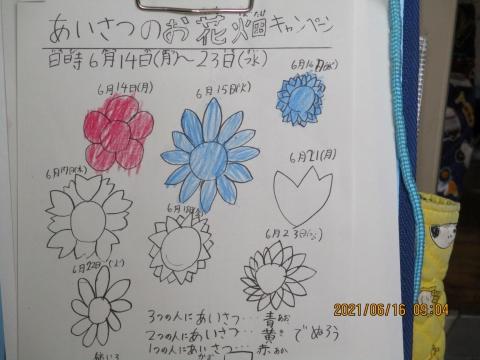 あいさつのお花畑キャンペーン
日時6月14日(月)〜23日(水)
6月14日(月)
6月15日(火)
6月16日(水)
6月17日(木)
6月18日(金)
6月21(月)
6月22日(火)
6月23日(水)
3つの人にあいさつ…青
2つの人にあいさつ…黄
1つの人にあいさつ…赤
でぬろう
2021/06/16 09:04